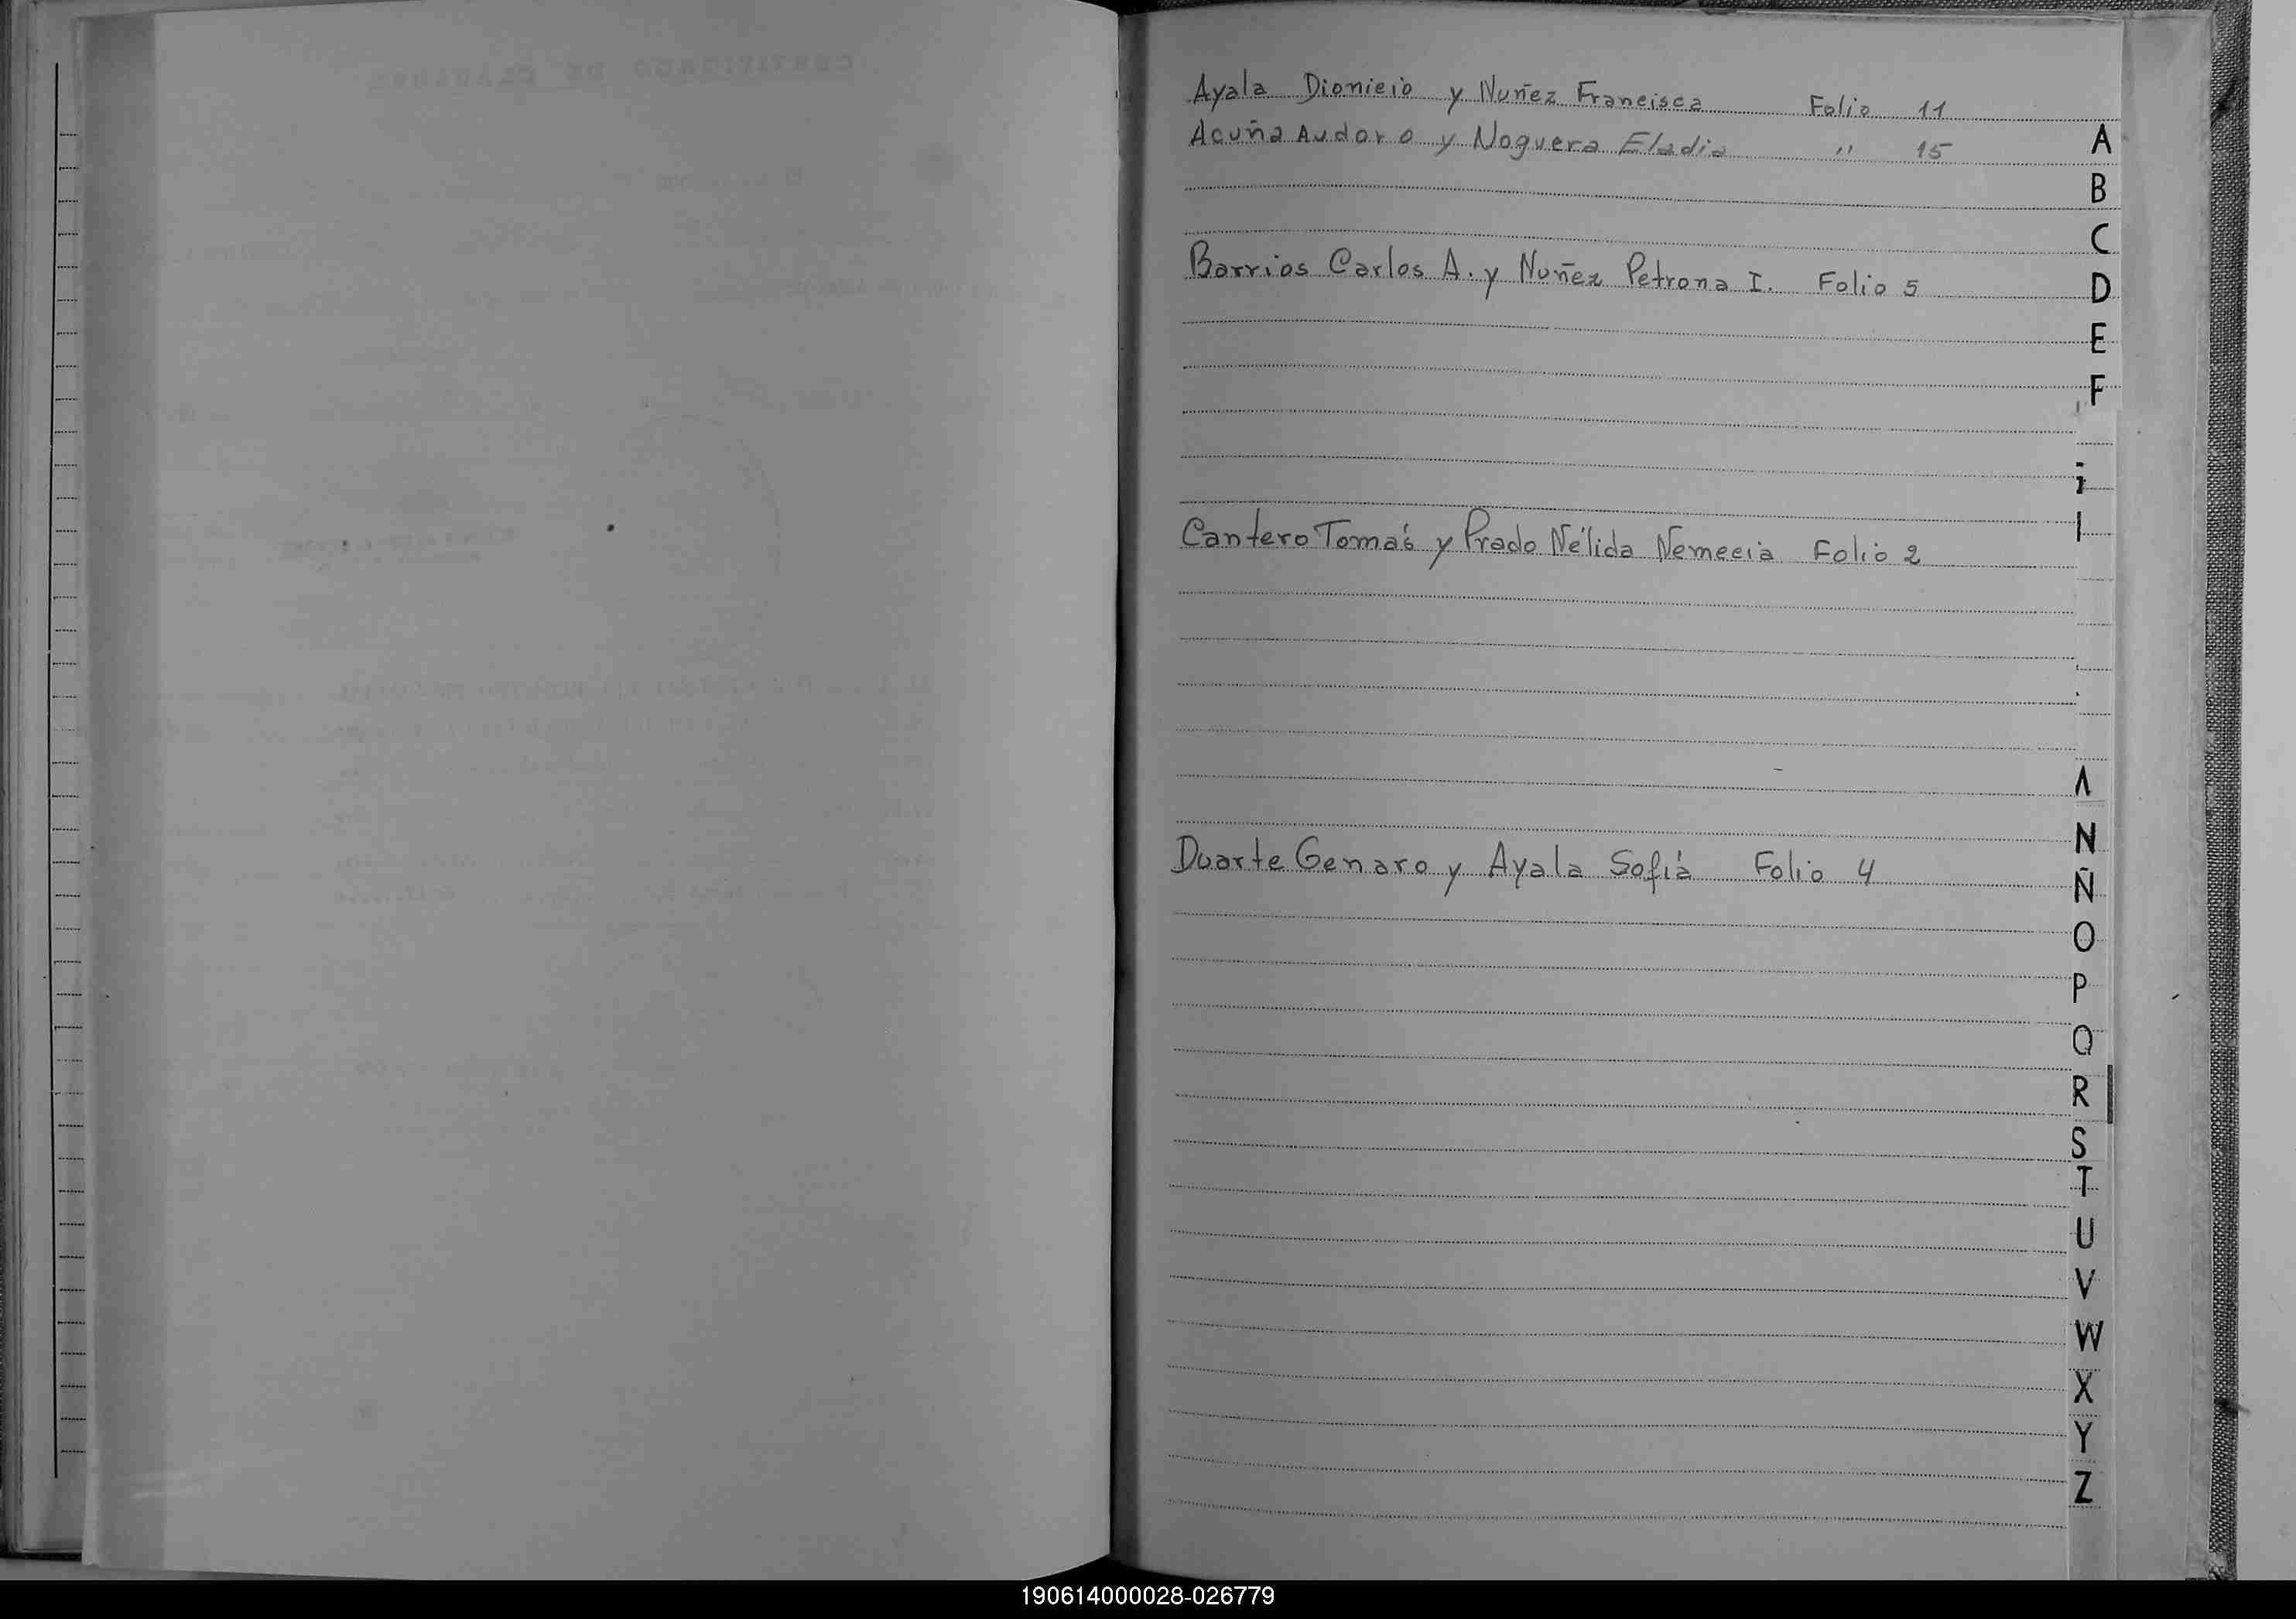 Ayala Dionicio y Nuñez Francisca Folio 11
Acuña Audoro y Noguera Eladia " 15
A
B
C
Barrios Carlos A. y Nuñez Petrona I. Folio 5
D
E
F
Cantero Tomás y Prado Nélida Nemecia Folio 2
N
Duarte Genaro y Ayala Sofía Folio 4
Ñ
O
P
Q
R
S
T
U
V
W
X
Y
Z
190614000028-026779